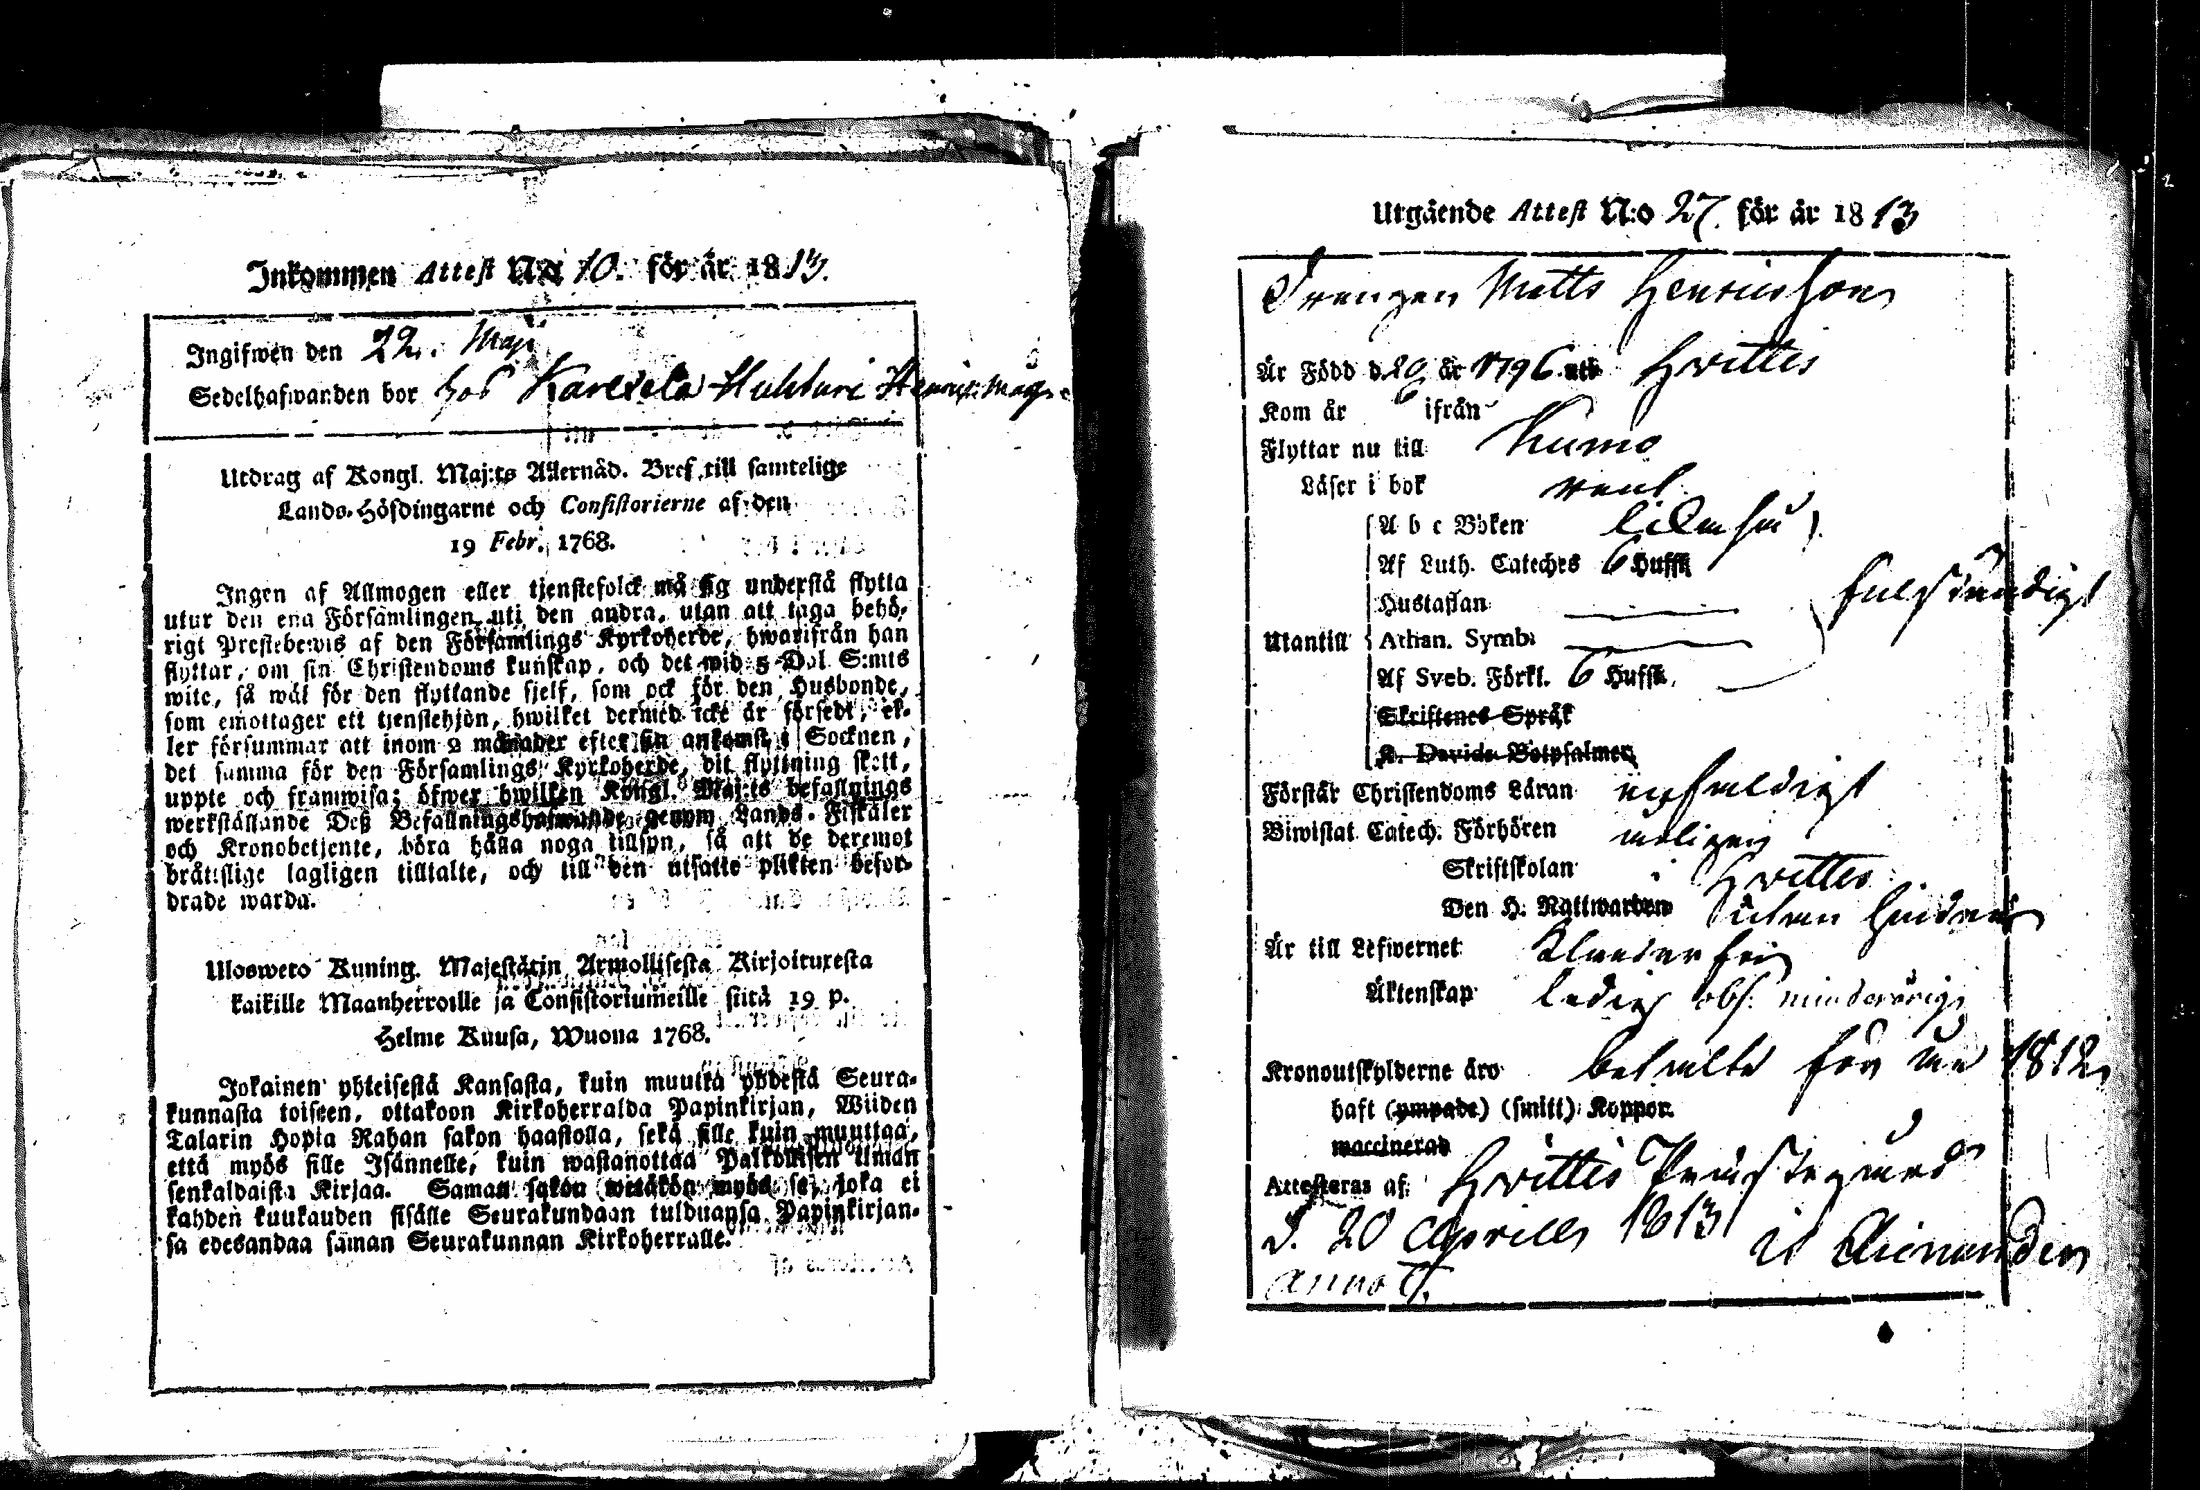 Inkommen Attest N:o 10. för år 1813.
Ingifwen den 22. Maji
Sedelhafwanden bor hos Karvela Huhtari Henric Mag
Utdrag af Kongl. Maj:ts Allernåd. Bref till samtelige
Lands-Höfdingarne och Consistorierne af den
19 Febr. 1768.
Ingen af Allmogen eller tjenstefolck må sig understå flytta
utur den ena Församlingen uti den andra, utan att taga behö-
rigt Prestebewis af den Församlings Kyrkoherde, hwarifrån han
flyttar, om sin Christendoms kunskap, och det wid 5 Dal. S:mts
wite, så wäl för den flyttande sjelf, som ock för den Husbonde,
som emottager ett tjenstehjon, hwilket dermed icke är försedt, el-
ler försummar att inom 2 månader efter sin ankomst i Socknen,
det samma för den Församlings Kyrkoherde, dit flyttning skett,
uppte och framwisa; öfwer hwilken Kongl. Maj:ts befallnings
werkställande Deß Befallningshafwande genom Lands-Fiskaler
och Kronobetjente, böra hålla noga tillsyn, så att de deremot
bråttslige lagligen tilltalte, och till den utsatte plikten befor-
drade warda.
Ulosweto Kuning. Majestätin Armollisesta Kirjoituxesta
kaikille Maanherroille ja Consistoriumeille siitä 19 p.
Helme Kuusa, Wuona 1768.
Jokainen yhteisestä Kansasta, kuin muutta yhdestä Seura-
kunnasta toiseen, ottakoon Kirkoherralda Papinkirjan, Wiiden
Talarin Hopia Rahan sakon haastolla, sekä sille kuin muuttaa,
että myös sille Isännelle, kuin wastanottaa Palkollisen ilman
senkaldaista Kirjaa. Saman sakon wetäkön myös se, joka ei
kahden kuukauden sisälle Seurakundaan tulduansa Papinkirjan-
sa edesandaa saman Seurakunnan Kirkoherralle.
Utgående Attest N:o 27. för år 1813
Drengen Matts Henricsson
Är Född d. 20 år 1796 uti Hvittis
Kom år ifrån
Flyttar nu till Kumo
Läser i bok rent
A b c Boken likaså
Af Luth. Cateches 6 Hufst.
Hustaflan
fulständigt
Utantill Athan. Symb:
Af Sveb. Förkl. 6 Hufst.
Skriftenes Språk
K. Davids Botpsalmer
Förstår Christendoms Läran enfaldigt
Biwistat Catech. Förhören
Skriftskolan i Hvittis
Den H. Nattwarden utan hinder
Är till Lefwernet klanderfri
Äktenskap ledig obs. minderårig
Kronoutskylderne äro betalte för år 1812
haft (ympade) (smitt) Koppor.
waccinerad
Attesteras af Hvittis Prästegård
d. 20 Aprill 1813